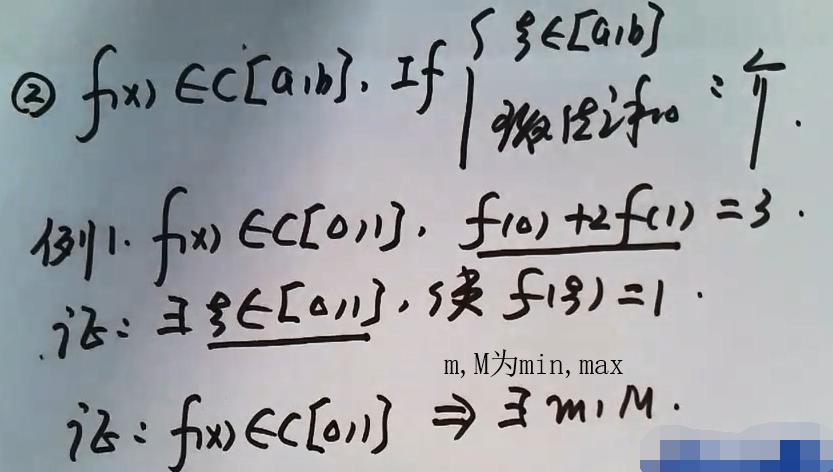 ② f(x)∈C[a,b]. If { ξ∈[a,b]
函数值之和 : 介
例1. f(x)∈C[0,1], f(0)+2f(1)=3.
证: ∃ξ∈[0,1], 使 f(ξ)=1.
m,M为min,max
证: f(x)∈C[0,1] ⇒ ∃ m, M.